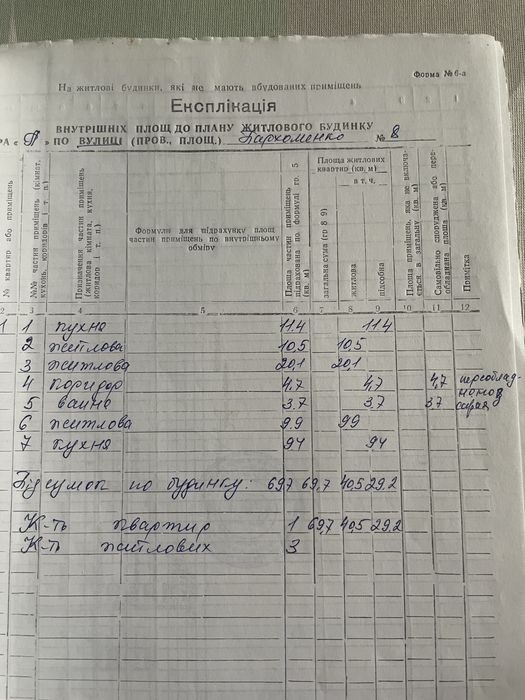 Форма № 6-а
На житлові будинки, які не мають вбудованих приміщень
Експлікація
ВНУТРІШНІХ ПЛОЩ ДО ПЛАНУ ЖИТЛОВОГО БУДИНКУ
РА « А » ПО ВУЛИЦІ (ПРОВ., ПЛОЩ.) Пархоменко № 8
№ квартир або приміщень
№№ частин приміщень (кімнат, кухонь, коридорів і т. п.)
Призначення частин приміщень (житлова кімната, кухня, коридор і т. п.)
Формули для підрахунку площ частин приміщень по внутрішньому обміру
Площа частин приміщень підрахована по формулі гр. 5 (кв. м)
Площа житлових квартир (кв. м)
загальна сума (гр 8 9)
в т. ч.
житлова
підсобна
Площа приміщень, яка не включається в загальну (кв. м)
Самовільно споруджена або переобладнана площа (кв. м)
Примітка
2 3 4 5 6 7 8 9 10 11 12
1 1 кухня 11.4 11.4
2 житлова 10,5 10,5
3 житлова 20,1 20,1
4 коридор 4,7 4,7 4,7 переоблад-
5 ванна 3.7 3.7 3.7
6 житлова 9.9 9.9
7 кухня 9.4 9.4
Підсумок по будинку: 69.7 69,7 40,5 29.2
К-ть квартир 1 69,7 40,5 29.2
К-ть житлових 3